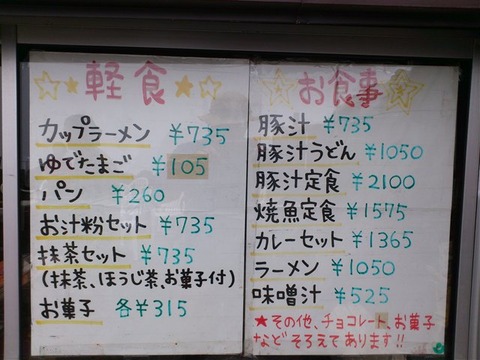 ☆☆軽食★☆
カップラーメン ¥735
ゆでたまご ¥105
パン ¥260
お汁粉セット ¥735
抹茶セット ¥735
(抹茶、ほうじ茶、お菓子付)
お菓子 各¥315
☆お食事☆
豚汁 ¥735
豚汁うどん ¥1050
豚汁定食 ¥2100
焼魚定食 ¥1575
カレーセット ¥1365
ラーメン ¥1050
味噌汁 ¥525
★その他、チョコレート、お菓子
などそろえてあります!!